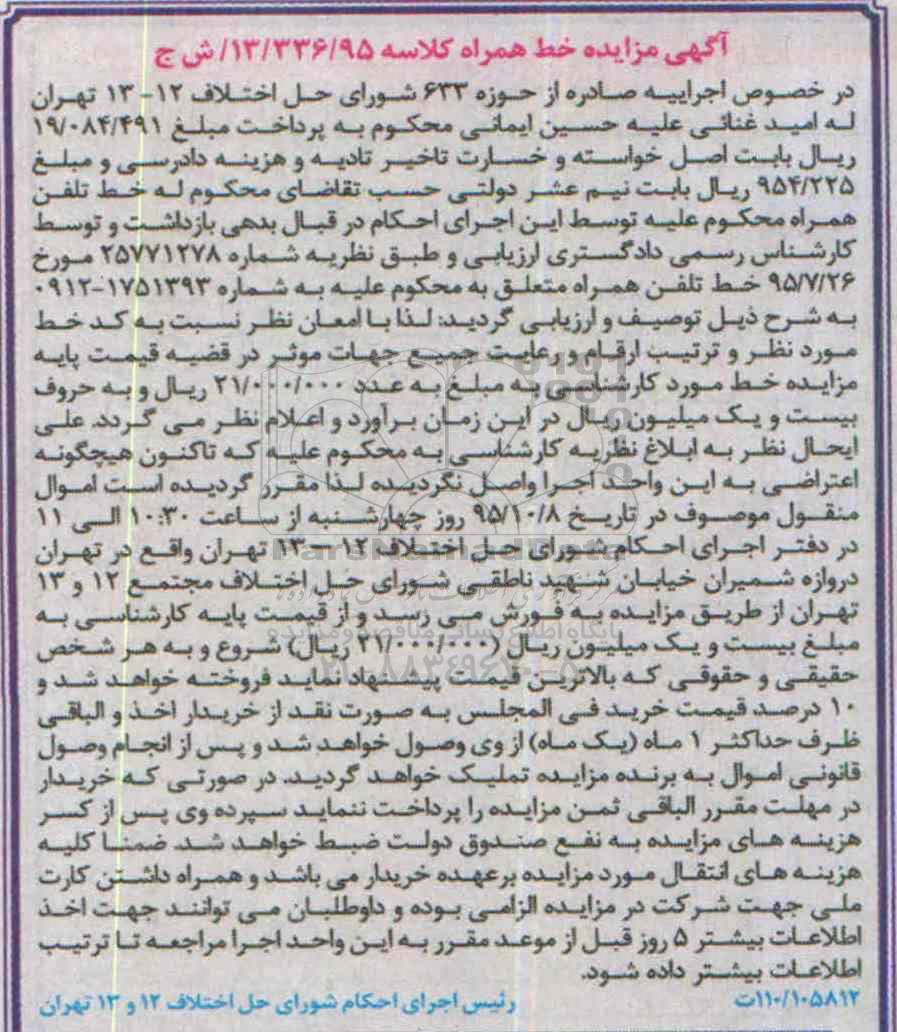 آگهی مزایده خط همراه کلاسه ۱۳/۳۳۶/۹۵/ ش ج
در خصوص اجراییه صادره از حوزه ۶۳۳ شورای حل اختلاف ۱۲- ۱۳ تهران
له امید غنائی علیه حسین ایمانی محکوم به پرداخت مبلغ ۱۹/۰۸۴/۴۹۱
ریال بابت اصل خواسته و خسارت تاخیر تادیه و هزینه دادرسی و مبلغ
۹۵۴/۲۲۵ ریال بابت نیم عشر دولتی حسب تقاضای محکوم له خط تلفن
همراه محکوم علیه توسط این اجرای احکام در قبال بدهی بازداشت و توسط
کارشناس رسمی دادگستری ارزیابی و طبق نظریه شماره ۲۵۷۷۱۲۷۸ مورخ
۹۵/۷/۲۶ خط تلفن همراه متعلق به محکوم علیه به شماره ۱۷۵۱۳۹۳-۰۹۱۲
به شرح ذیل توصیف و ارزیابی گردید: لذا با امعان نظر نسبت به کد خط
مورد نظر و ترتیب ارقام و رعایت جمیع جهات موثر در قضیه قیمت پایه
مزایده خط مورد کارشناسی به مبلغ به عدد ۲۱/۰۰۰/۰۰۰ ریال و به حروف
بیست و یک میلیون ریال در این زمان برآورد و اعلام نظر می گردد. علی
ایحال نظر به ابلاغ نظریه کارشناسی به محکوم علیه که تاکنون هیچگونه
اعتراضی به این واحد اجرا واصل نگردیده لذا مقرر گردیده است اموال
منقول موصوف در تاریخ ۹۵/۱۰/۸ روز چهارشنبه از ساعت ۱۰:۳۰ الی ۱۱
در دفتر اجرای احکام شورای حل اختلاف ۱۲ – ۱۳ تهران واقع در تهران
دروازه شمیران خیابان شهید ناطقی شورای حل اختلاف مجتمع ۱۲ و ۱۳
تهران از طریق مزایده به فورش می رسد و از قیمت پایه کارشناسی به
مبلغ بیست و یک میلیون ریال (۲۱/۰۰۰/۰۰۰ ریال) شروع و به هر شخص
حقیقی و حقوقی که بالاترین قیمت پیشنهاد نماید فروخته خواهد شد و
۱۰ درصد قیمت خرید فی المجلس به صورت نقد از خریدار اخذ و الباقی
ظرف حداکثر ۱ ماه (یک ماه) از وی وصول خواهد شد و پس از انجام وصول
قانونی اموال به برنده مزایده تملیک خواهد گردید. در صورتی که خریدار
در مهلت مقرر الباقی ثمن مزایده را پرداخت ننماید سپرده وی پس از کسر
هزینه های مزایده به نفع صندوق دولت ضبط خواهد شد. ضمنا کلیه
هزینه های انتقال مورد مزایده برعهده خریدار می باشد و همراه داشتن کارت
ملی جهت شرکت در مزایده الزامی بوده و داوطلبان می توانند جهت اخذ
اطلاعات بیشتر ۵ روز قبل از موعد مقرر به این واحد اجرا مراجعه تا ترتیب
اطلاعات بیشتر داده شود.
۱۱۰/۱۰۵۸۱۲ت رئیس اجرای احکام شورای حل اختلاف ۱۲ و ۱۳ تهران